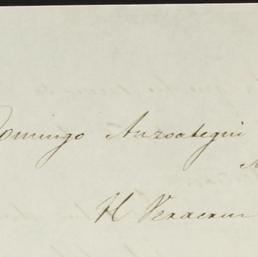 Domingo Anzoategui
H Veracruz